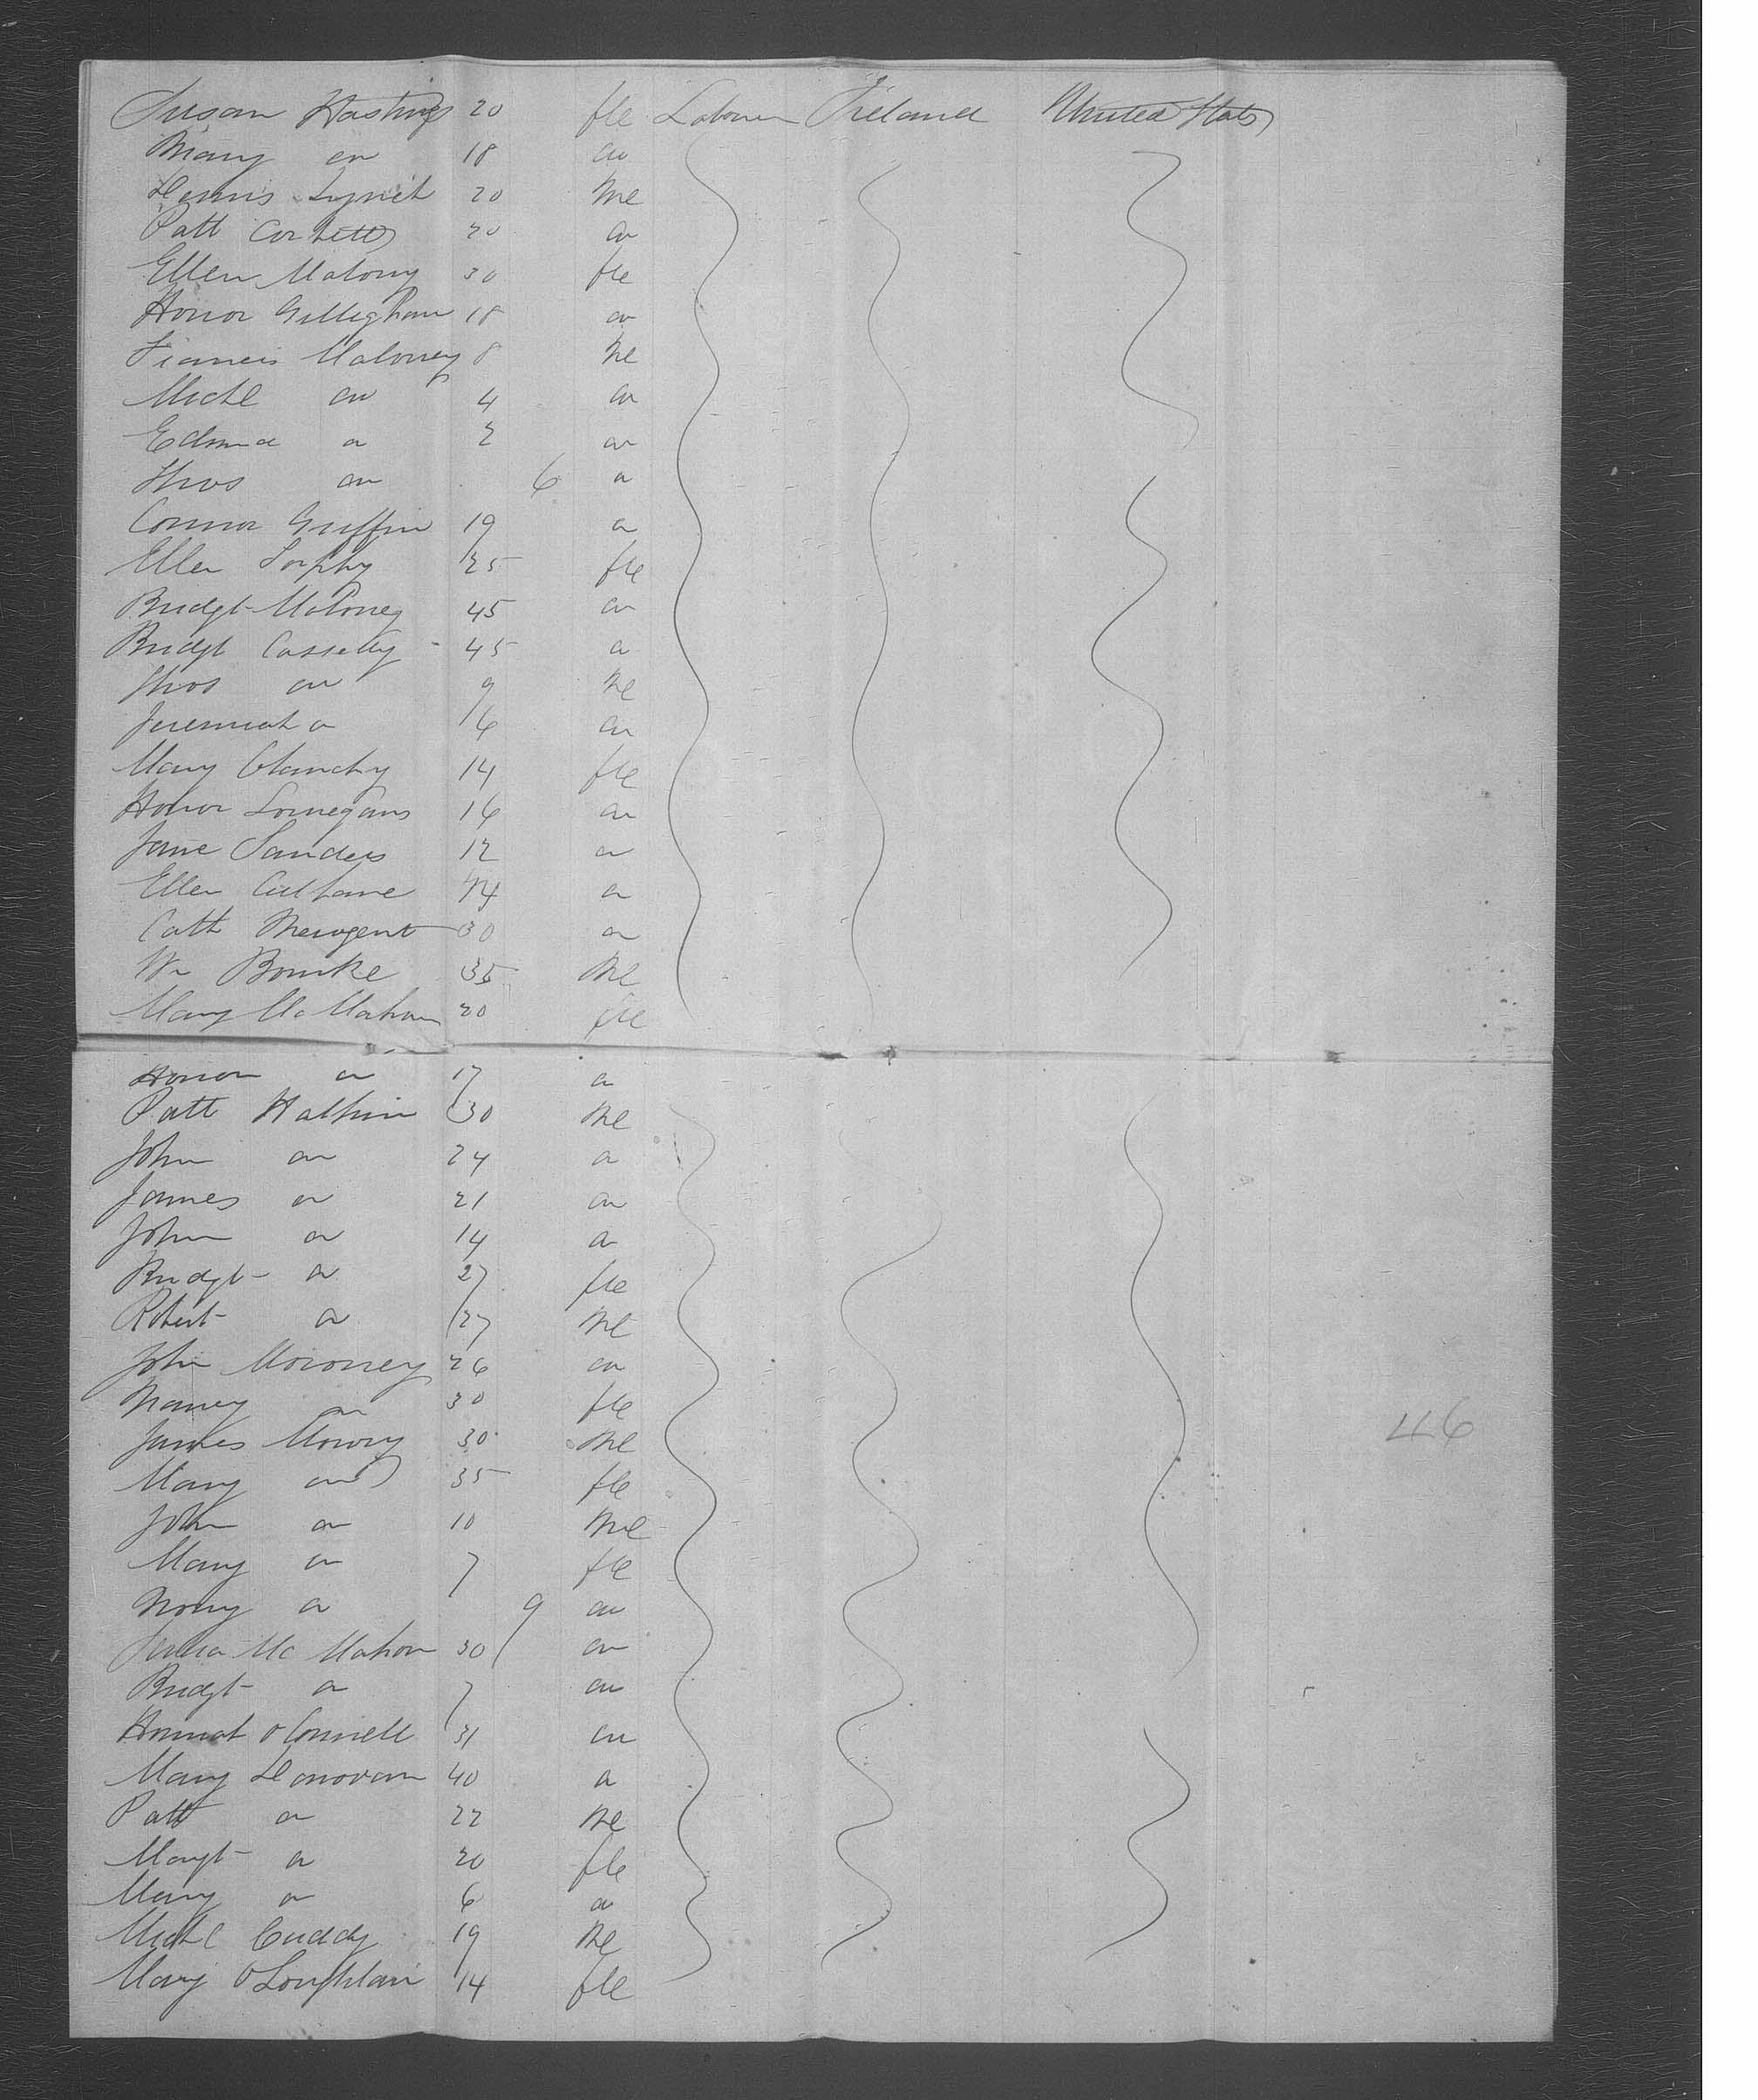 Susan Hastings 20 fle Laborer Ireland United States
Mary do 18 do
Dennis Lynch 20 Me
Patt Corbett 20 do
Ellen Malony 30 fle
Honor Gilleghan 18 do
Francis Maloney 8 Me
Michl do 4 do
Edmund do 2 do
Thos do 6 do
Connor Griffin 19 do
Ellen 25 fle
Bridgt Maloney 45 do
Bridgt Casselly 45 do
Thos do 9 Me
Jeremiah do 6 do
Mary Clanchy 14 fle
Honor 16 do
Jane Sanders 12 do
Ellen Culhane do
Cath 30 do
Wm Bourke 35 Me
Mary McMahon 20 fle
Honor do 17 do
Patt Halpin 30 Me
John do 24 do
James do 21 do
John do 14 do
Bridgt do 27 fle
Robert do 27 Me
John Moroney 26 do
Nancy do 30 fle
James Morony 30 Me
Mary do 35 fle
John do 10 Me
Mary do 7 fle
Nony do 9 do
McMahon 30 do
Bridgt do 7 do
Hannah O Connell 31 do
Mary Donovan 40 do
Patt do 22 Me
Margt do 20 fle
Mary do 6 do
Michl Cuddy 19 Me
Mary O Loughlan 14 fle
46